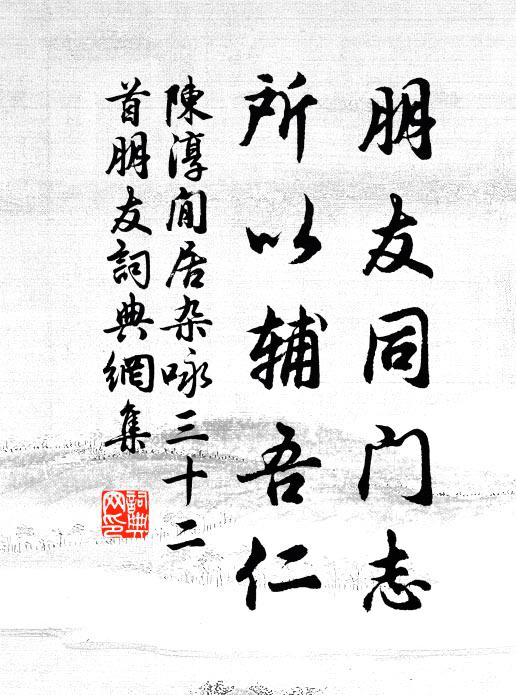 朋友同门志
所以辅吾仁
陳淳閒居杂咏三十二
首朋友詞典網集
詞典
网印